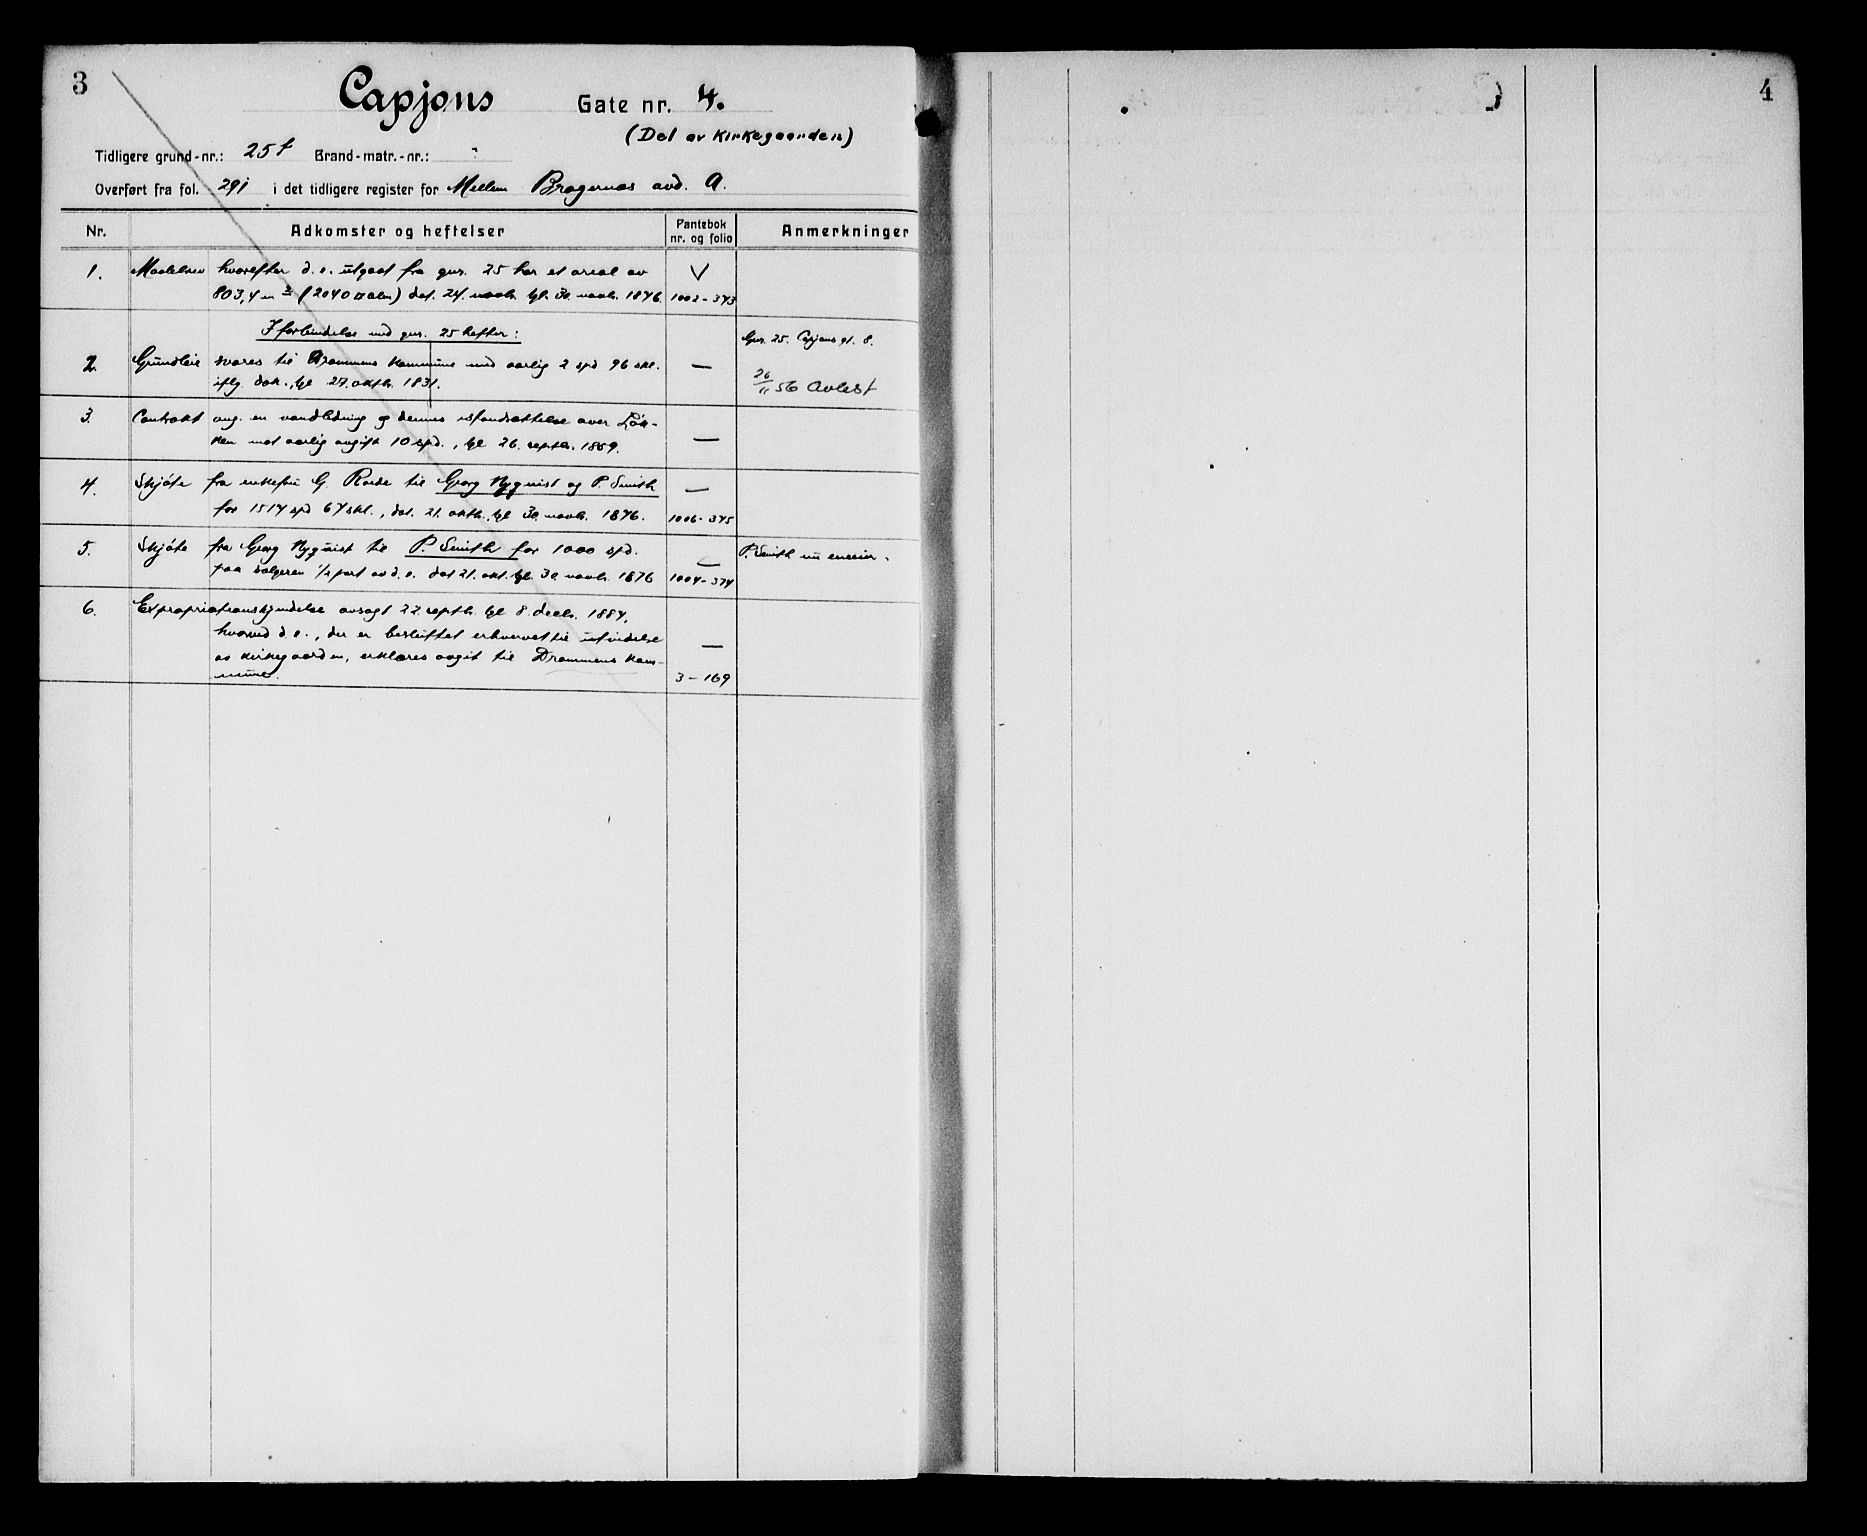 3
Capjons Gate nr. 4.
(Del av Kirkegaarden)
Tidligere grund-nr.: 25f Brand-matr.-nr.:
Overført fra fol. 291 i det tidligere register for Mellem Bragernæs avd. A.
Nr. Adkomster og heftelser Pantebok nr. og folio Anmerkninger
1. Maalebrev hvorefter d. e. utgaat fra gnr. 25 har et areal av
803,4 m² (2040 □ alen) dat. 24. novbr. tgl. 30. novbr. 1876. 1002-373
I forbindelse med gnr. 25 hefter:
Gnr. 25. Capjons gt. 8.
2. Grundleie svares til Drammens Kommune med aarlig 2 spd 96 skl.
iflg. dok., tgl 27. oktbr. 1831. — 26/11 56 Avlest
3. Contrakt ang. en vandledning og dennes istandsættelse over Løk-
ken mot aarlig avgift 10 spd., tgl 26. septbr. 1859. —
4. Skjøte fra enkefru G. Rode til Georg Nyquist og P. Smith —
for 1514 spd 67 skl., dat. 21. oktb., tgl 30. novbr. 1876. 1006-375
5. Skjøte fra Georg Nyquist til P. Smith for 1000 spd. — P. Smith nu eneeier.
paa sælgeren 1/2 part av d. e. dat 21. okt. tgl. 30. novbr. 1876 1004-374
6. Expropriationskjendelse avsagt 22. septbr. tgl 8. decbr. 1884,
hvorved d. e., der er besluttet erhvervet til utvidelse
av kirkegaarden, erklæres avgit til Drammens Kom- —
mune. 3-169
4